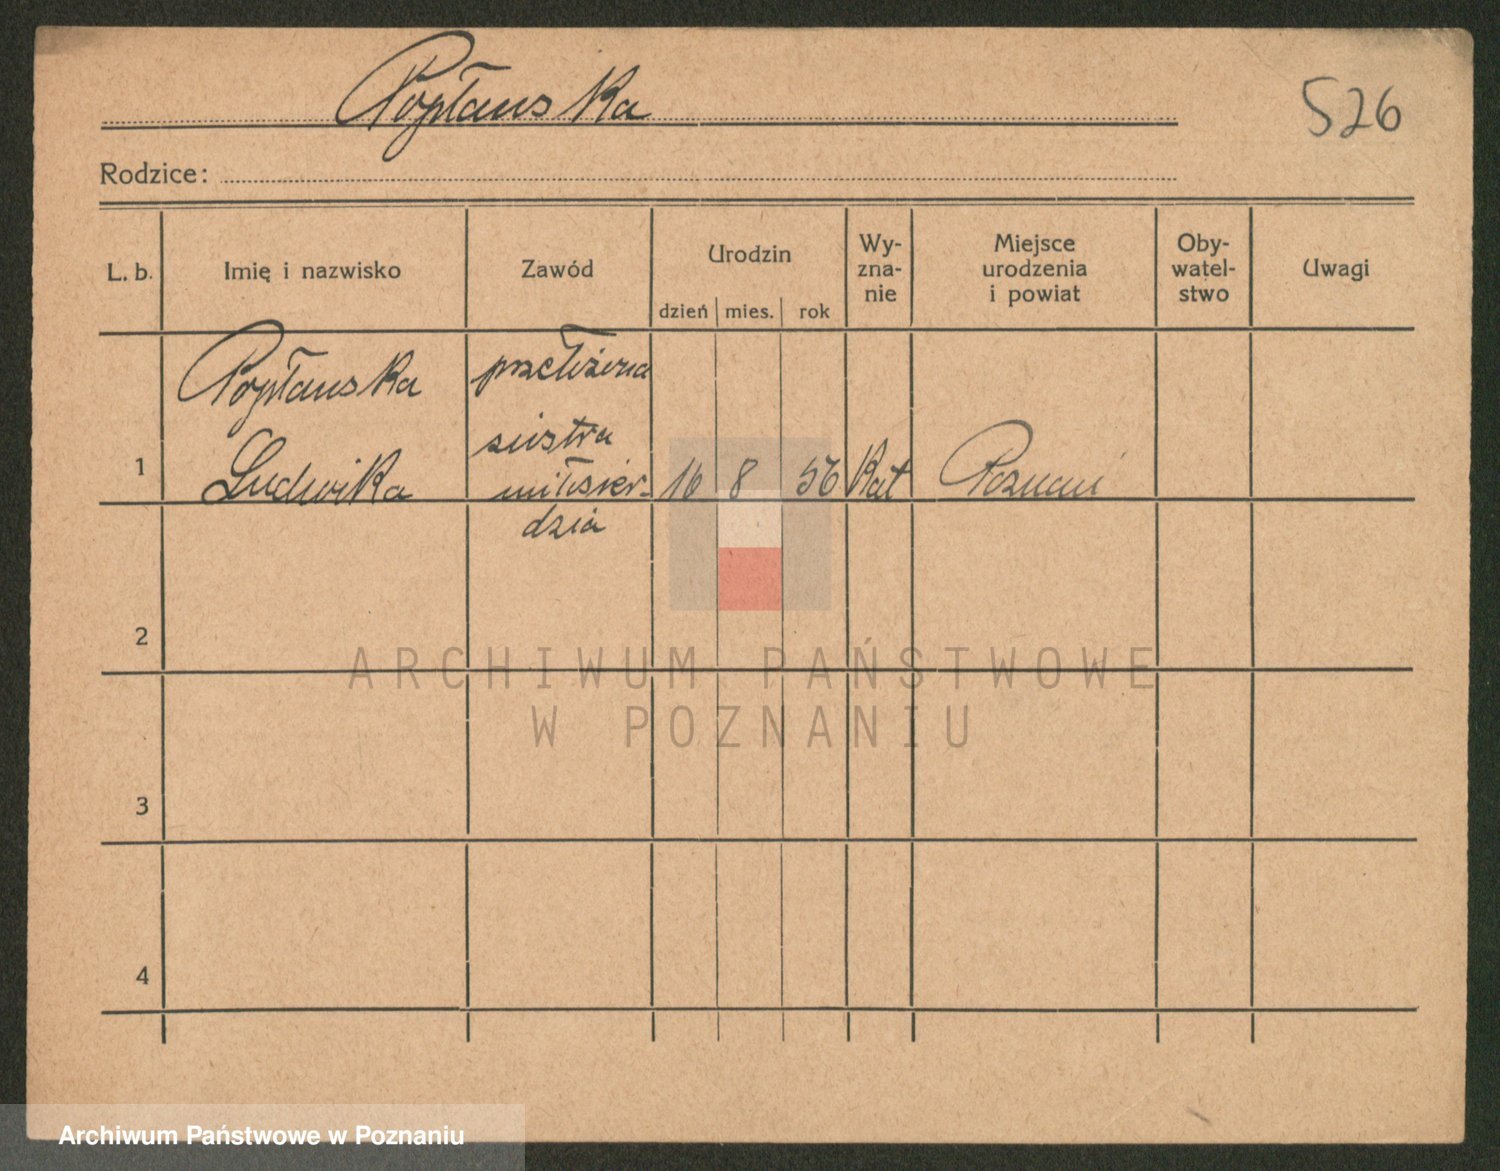 Popławska
526
Rodzice:
L. b.
Imię i nazwisko
Zawód
Urodzin
dzień mies. rok
Wy-
zna-
nie
Miejsce
urodzenia
i powiat
Oby-
watel-
stwo
Uwagi
1
Popławska
Ludwika
przełożona
siostra
miłosier-
dzia
16 8 56
Kat
Poznań
2
3
4
ARCHIWUM PAŃSTWOWE
W POZNANIU
Archiwum Państwowe w Poznaniu